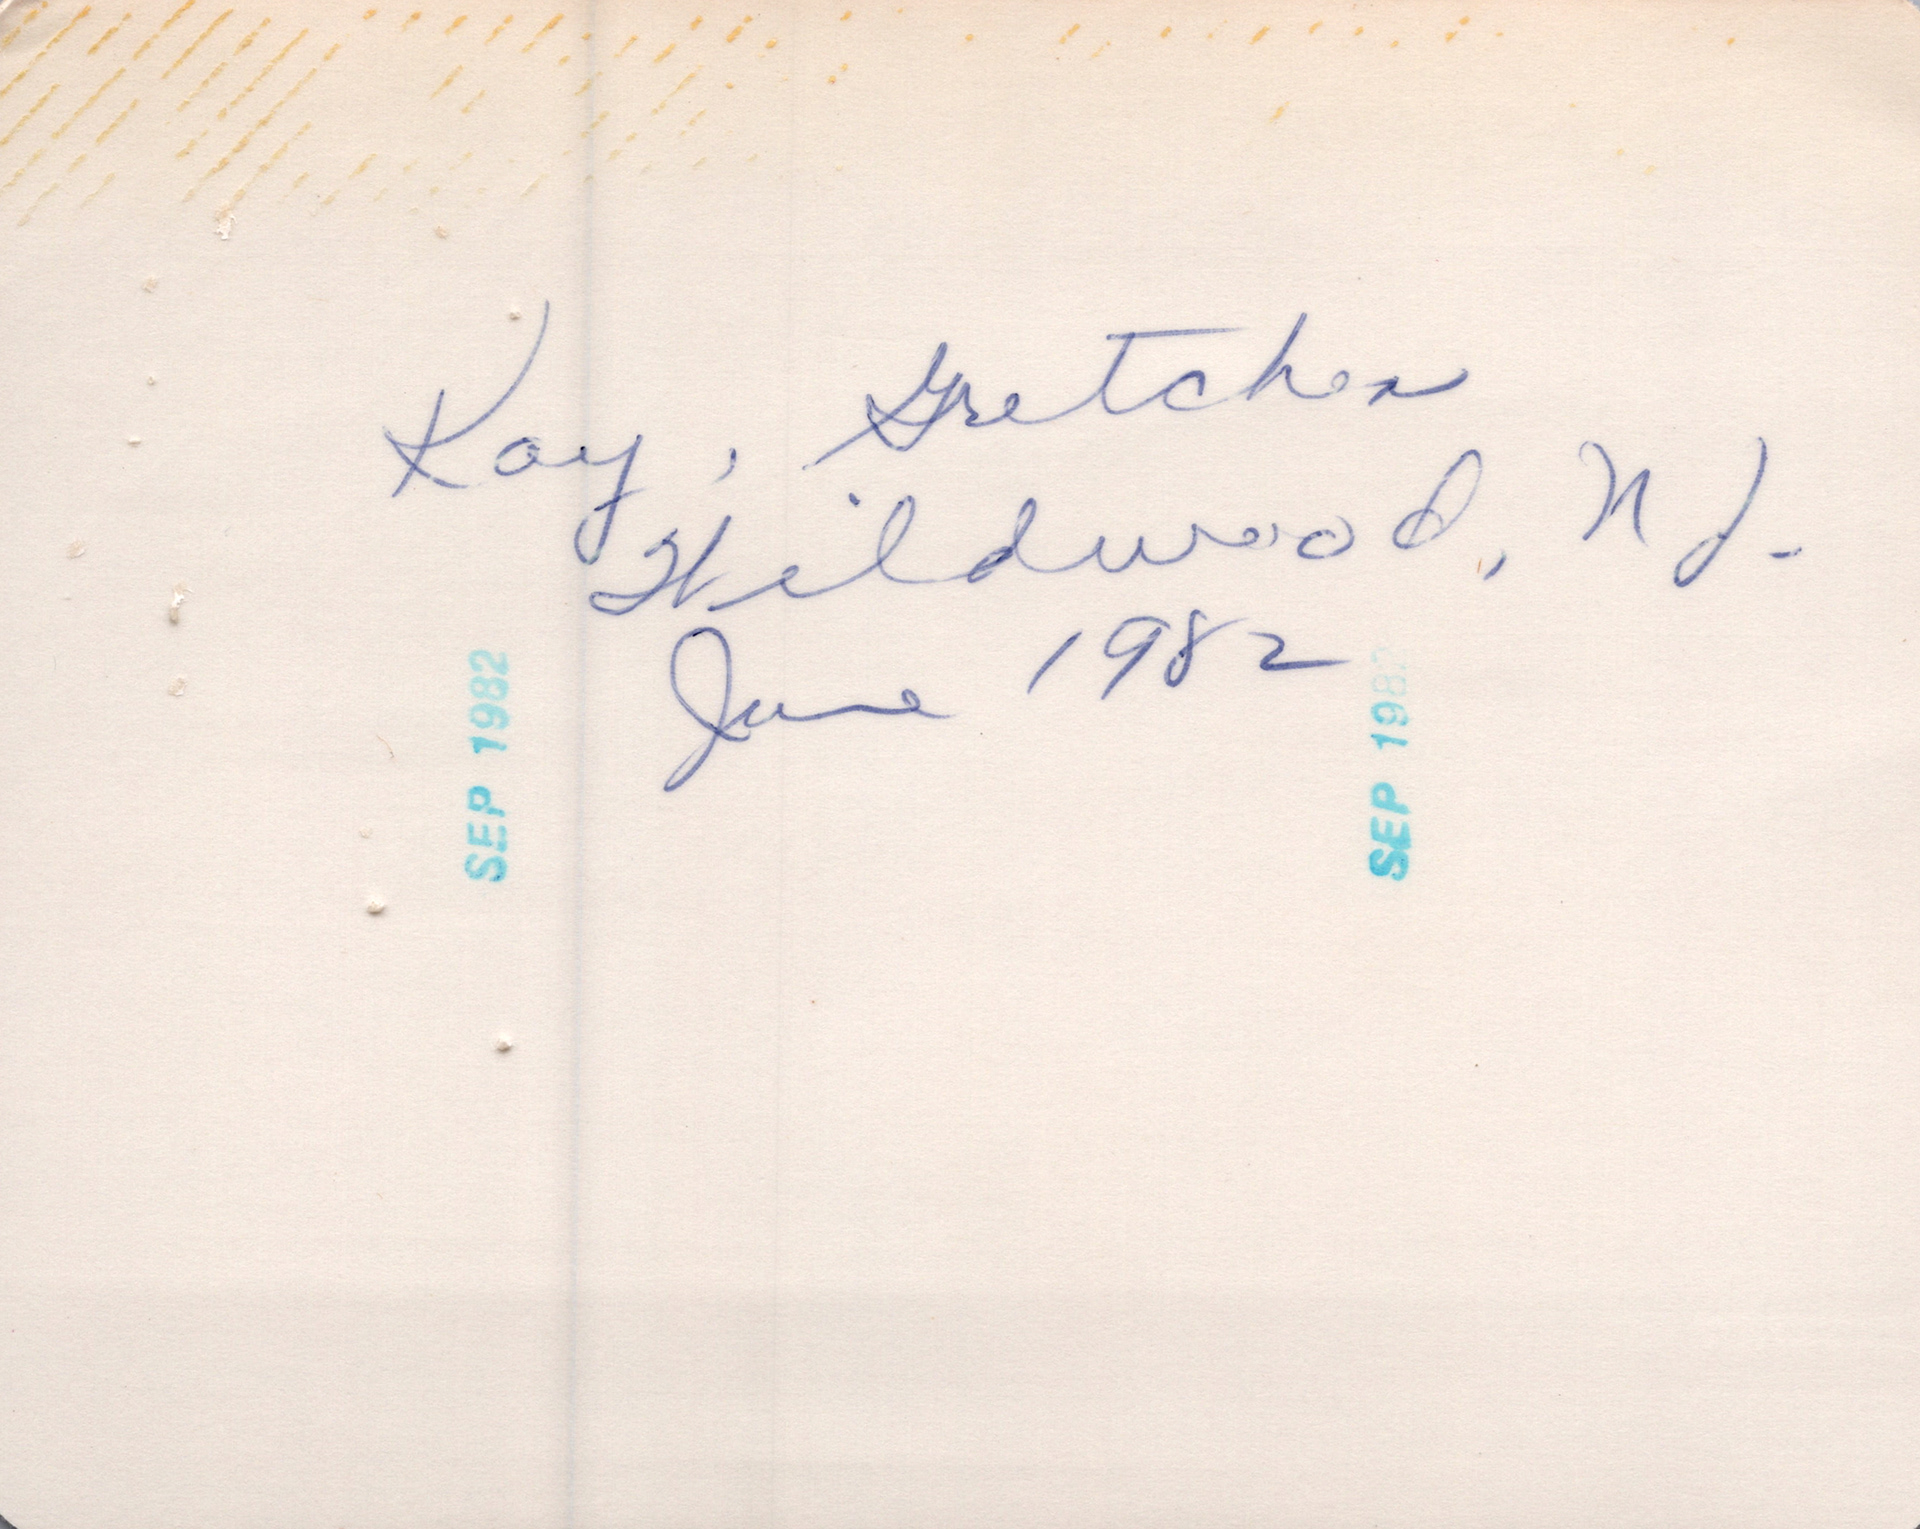 Kay, Gretchen
Wildwood, N J.
June 1982
SEP 1982
SEP 1982